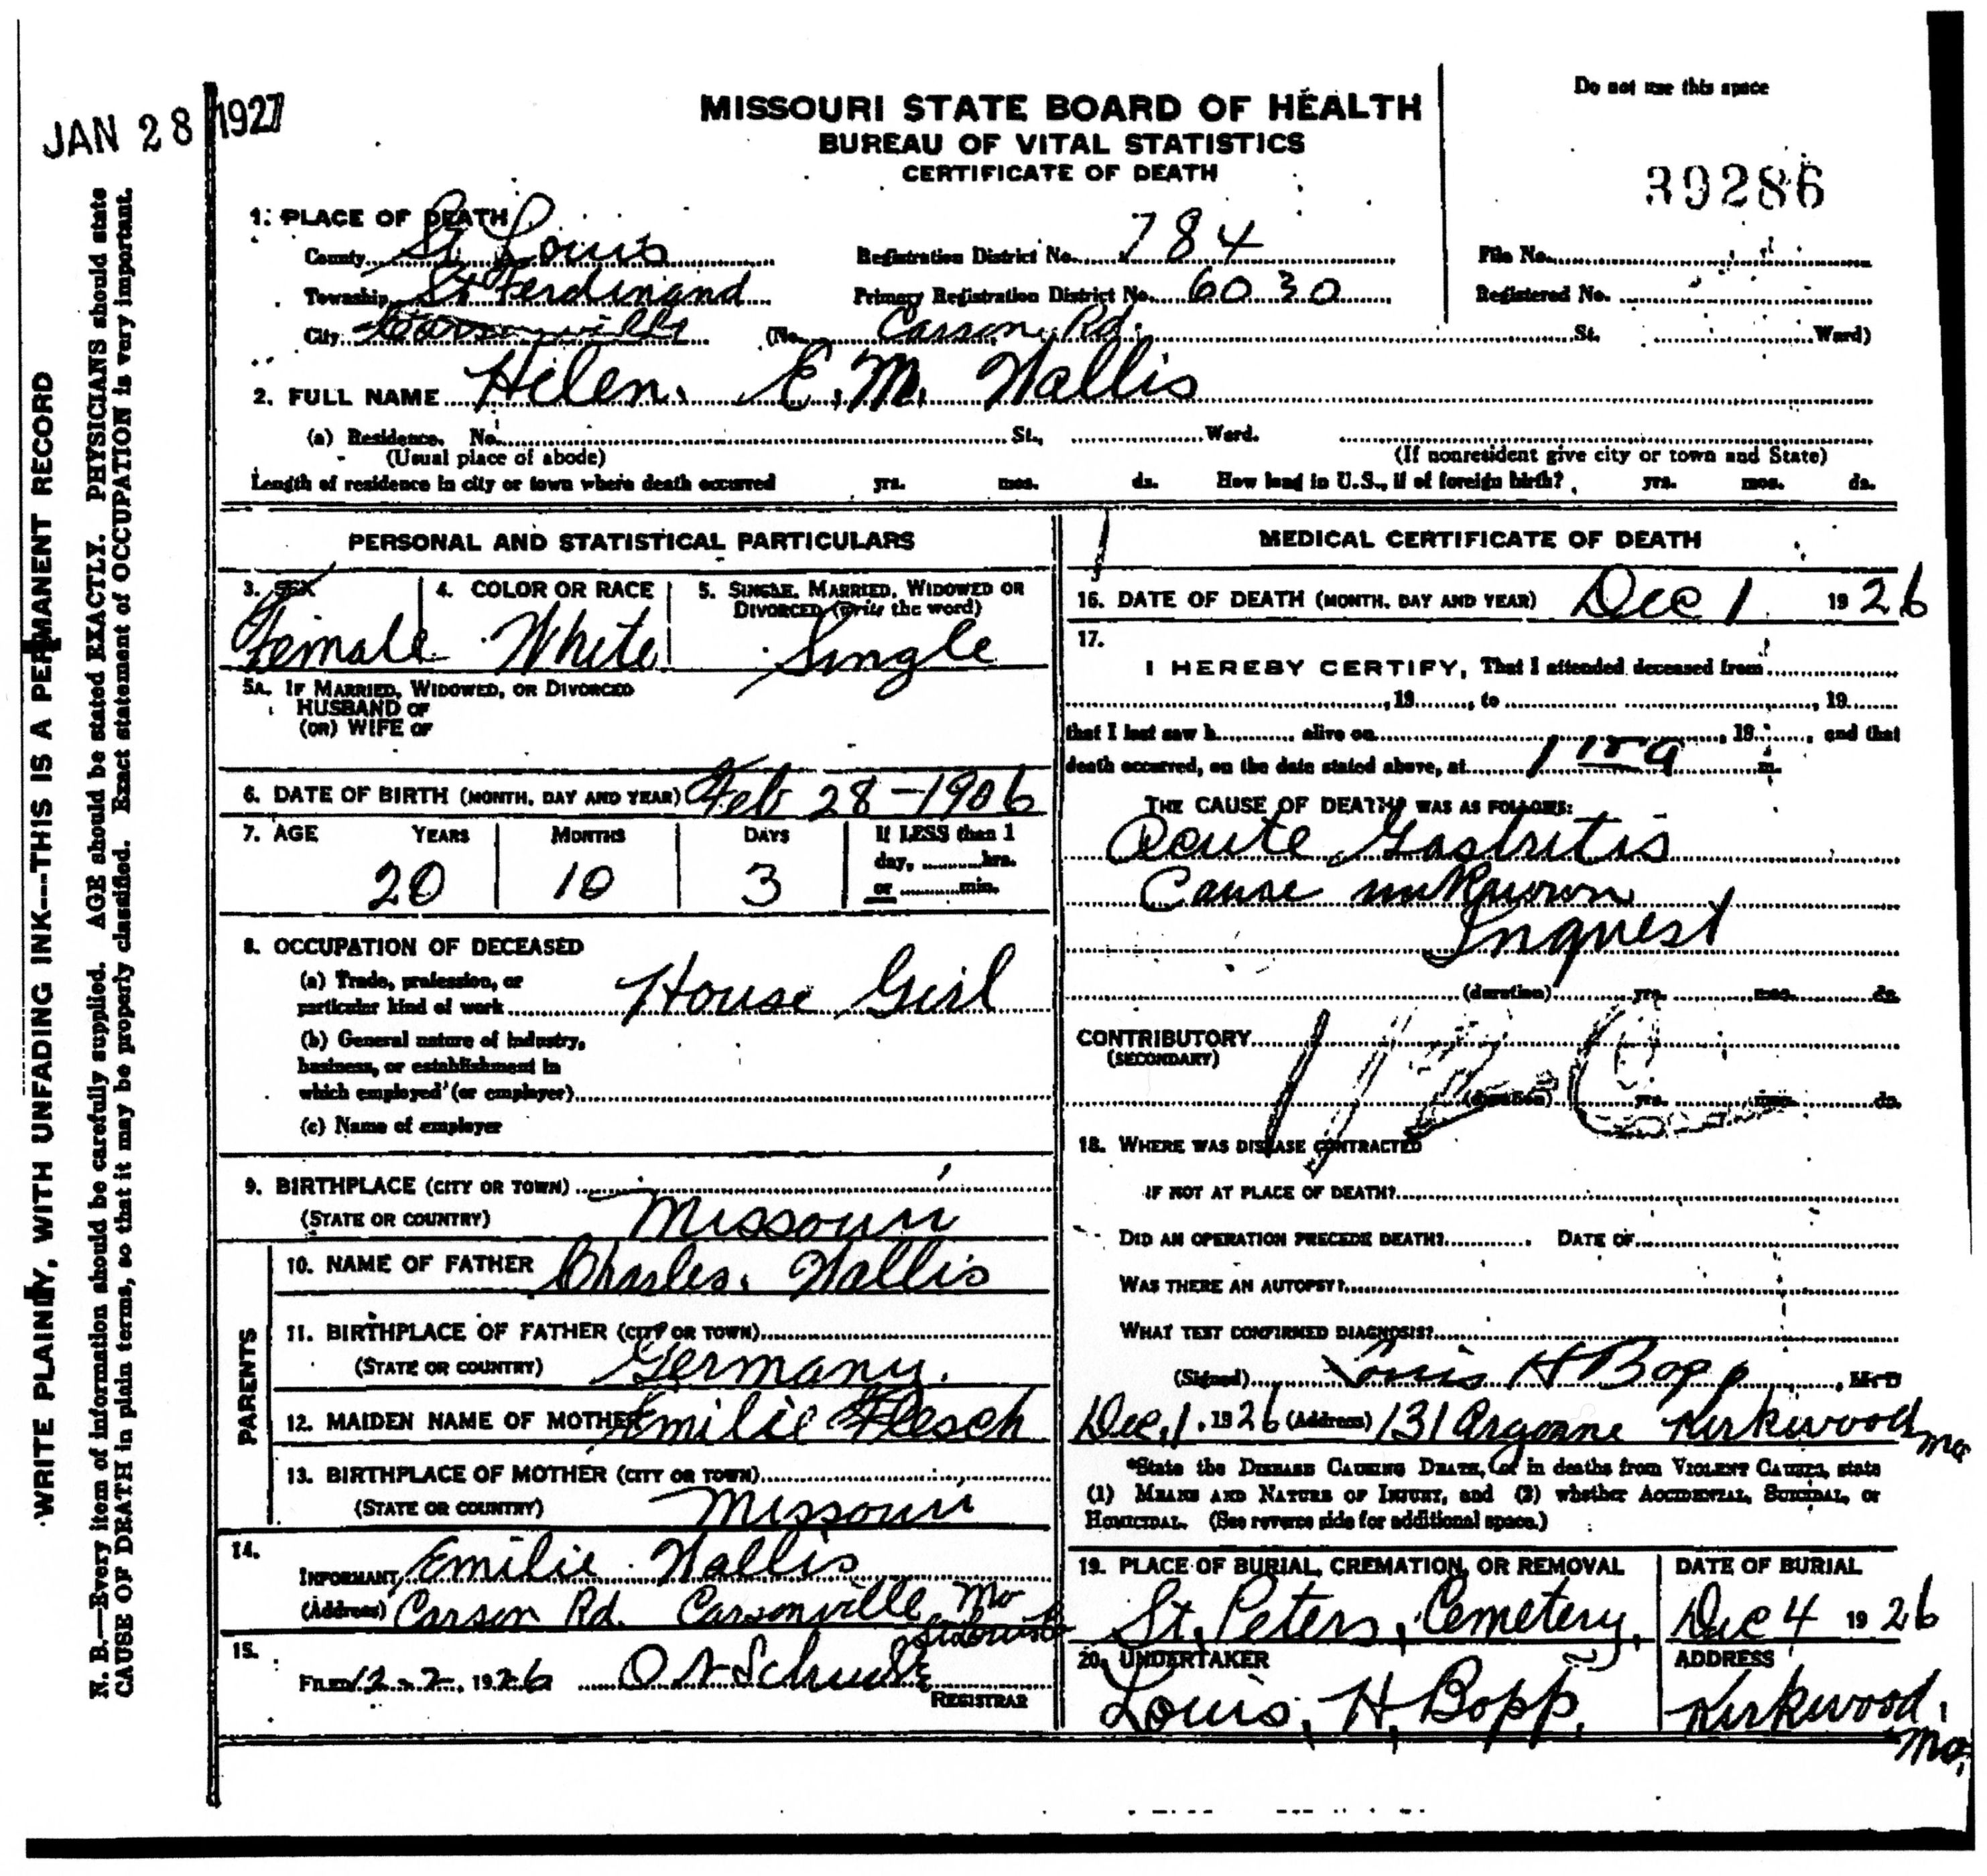 JAN 28 1927
MISSOURI STATE BOARD OF HEALTH
BUREAU OF VITAL STATISTICS
CERTIFICATE OF DEATH
Do not use this space
39286
1. PLACE OF DEATH
County St Louis Registration District No. 784 File No.
Township St Ferdinand Primary Registration District No. 6030 Registered No.
City Carsonville (No. Carson Rd. St. Ward)
2. FULL NAME Helen. E. M. Wallis
(a) Residence. No. St., Ward.
(Usual place of abode) (If nonresident give city or town and State)
Length of residence in city or town where death occurred yrs. mos. ds. How long in U.S., if of foreign birth? yrs. mos. ds.
PERSONAL AND STATISTICAL PARTICULARS
3. SEX 4. COLOR OR RACE 5. SINGLE, MARRIED, WIDOWED OR
DIVORCED (write the word)
Female White Single
5A. IF MARRIED, WIDOWED, OR DIVORCED
HUSBAND OF
(OR) WIFE OF
6. DATE OF BIRTH (MONTH, DAY AND YEAR) Feb 28-1906
7. AGE YEARS MONTHS DAYS If LESS than 1
day, hrs.
20 10 3 or min.
8. OCCUPATION OF DECEASED
(a) Trade, profession, or
particular kind of work House Girl
(b) General nature of industry,
business, or establishment in
which employed (or employer)
(c) Name of employer
9. BIRTHPLACE (CITY OR TOWN)
(STATE OR COUNTRY) Missouri
PARENTS
10. NAME OF FATHER Charles. Wallis
11. BIRTHPLACE OF FATHER (CITY OR TOWN)
(STATE OR COUNTRY) Germany.
12. MAIDEN NAME OF MOTHER Emilie Flesch
13. BIRTHPLACE OF MOTHER (CITY OR TOWN)
(STATE OR COUNTRY) Missouri
14.
INFORMANT Emilie Wallis
(Address) Carson Rd. Carsonville Mo
15.
FILED 12-2, 1926
REGISTRAR
MEDICAL CERTIFICATE OF DEATH
16. DATE OF DEATH (MONTH, DAY AND YEAR) Dec 1 1926
17.
I HEREBY CERTIFY, That I attended deceased from
, 19, to , 19
that I last saw h alive on , 19, and that
death occurred, on the date stated above, at 1 15 a m.
THE CAUSE OF DEATH* WAS AS FOLLOWS:
Acute Gastritis
Cause unknown
Inquest
(duration) yrs. mos. ds.
CONTRIBUTORY
(SECONDARY)
(duration) yrs. mos. ds.
18. WHERE WAS DISEASE CONTRACTED
IF NOT AT PLACE OF DEATH?
DID AN OPERATION PRECEDE DEATH? DATE OF
WAS THERE AN AUTOPSY?
WHAT TEST CONFIRMED DIAGNOSIS?
(Signed) Louis H Bopp, M. D
Dec. 1. 1926 (Address) 131 Argonne Kirkwood Mo
*State the DISEASE CAUSING DEATH, or in deaths from VIOLENT CAUSES, state
(1) MEANS AND NATURE OF INJURY, and (2) whether ACCIDENTAL, SUICIDAL, or
HOMICIDAL. (See reverse side for additional space.)
19. PLACE OF BURIAL, CREMATION, OR REMOVAL DATE OF BURIAL
St. Peters, Cemetery, Dec 4 1926
20. UNDERTAKER ADDRESS
Louis. H. Bopp. Kirkwood, Mo,
WRITE PLAINLY, WITH UNFADING INK---THIS IS A PERMANENT RECORD
N. B.—Every item of information should be carefully supplied. AGE should be stated EXACTLY. PHYSICIANS should state
CAUSE OF DEATH in plain terms, so that it may be properly classified. Exact statement of OCCUPATION is very important.